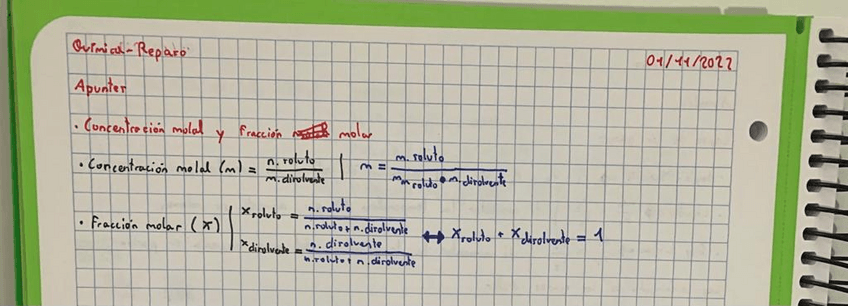 Química - Reparo
01/11/2022
Apuntes
· Concentración molal y fracción molar
· Concentración molal (m) = n. soluto / m. disolvente | m = m. soluto / Mm soluto · m. disolvente
· Fracción molar (x) | x soluto = n. soluto / n. soluto + n. disolvente ↔ x soluto + x disolvente = 1
x disolvente = n. disolvente / n. soluto + n. disolvente